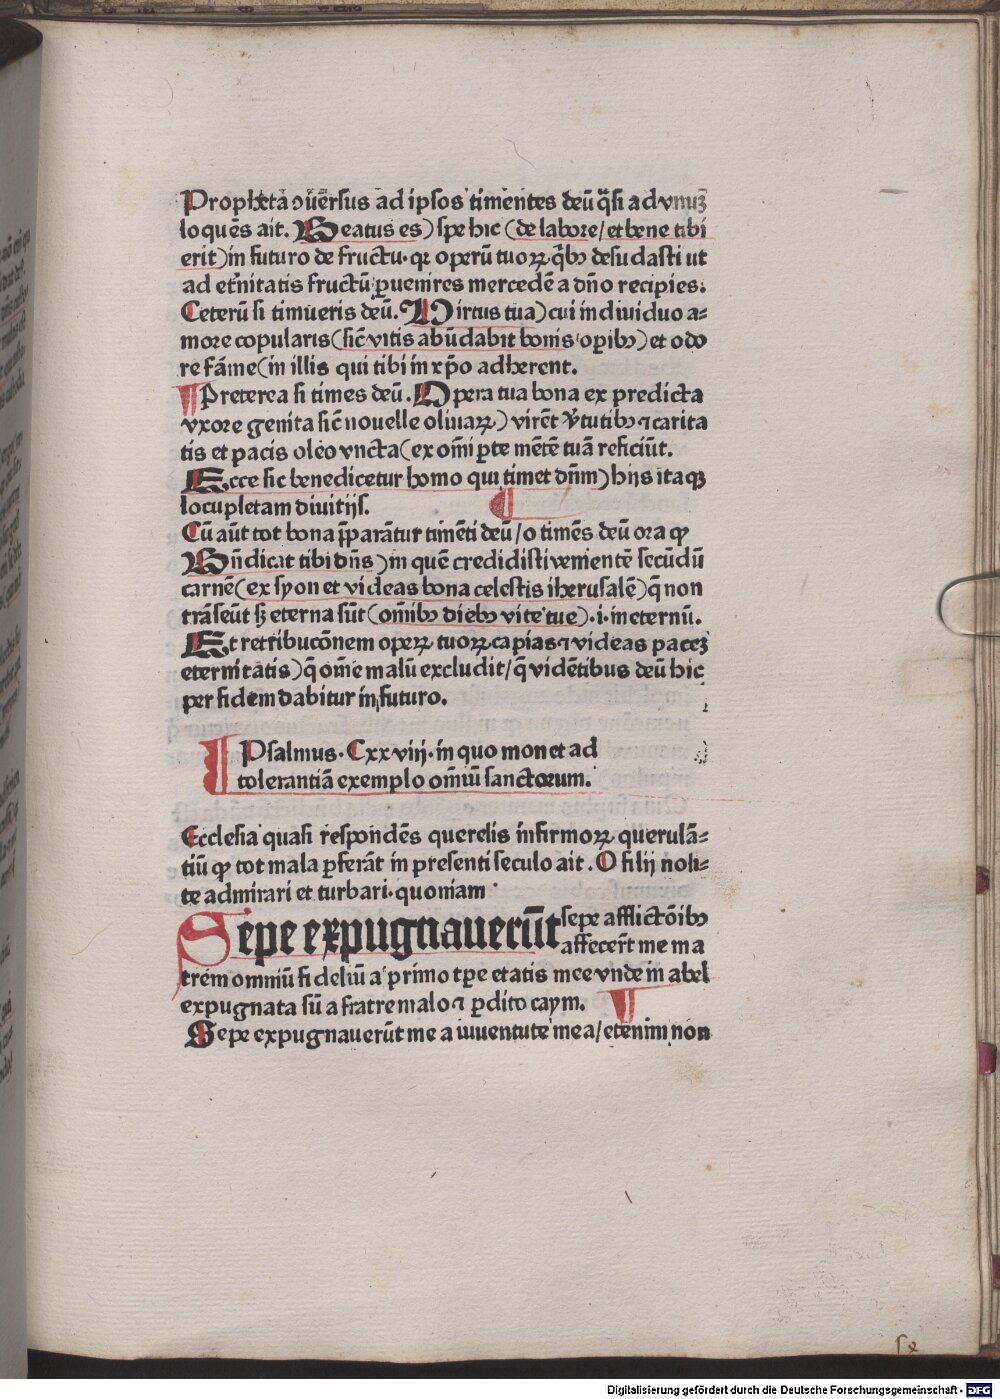 Propheta ꝯuersus ad ipsos timentes deū q̄si ad vnuꝫ
loquēs ait. Beatus es) spe hic (de labore/ et bene tibi
erit) in futuro de fructu· qꝛ operū tuoꝝ q̄bꝫ desudasti ut
ad et̄nitatis fructū ꝑuenires mercedē a dn̄o recipies.
Ceterū si timueris deū. Virtus tua) cui indiuiduo a⸗
more copularis (sic̄ vitis abūdabit bonis opibꝫ) et odo
re fame (in illis qui tibi in xp̄o adherent.
Preterea si times deū. Opera tua bona ex predicta
vxore genita sic̄ nouelle oliuaꝝ) virēt v̄tutibꝫ ⁊ carita
tis et pacis oleo vncta (ex om̄i ꝑte mētē tuā reficiūt.
Ecce sic benedicetur homo qui timet dn̄m) hijs itaqꝫ
locupletam diuitijs.
Cū aūt tot bona p̄parātur timēti deū/ o timēs deū ora ꝙ
Bn̄dicat tibi dn̄s) in quē credidisti veniente secūdū
carnē (ex syon et videas bona celestis iherusalē) q̄ non
trāseūt sꝫ eterna sūt (om̄ibꝫ diebꝫ vite tue) .i. in eternū.
Et retribucōnem opeꝝ tuoꝝ capias ⁊ videas paceꝫ
eternitatis) q̄ om̄e malū excludit/ q̄ vidētibus deū hic
per fidem dabitur in futuro.
Psalmus· Cxxviij· in quo monet ad
tolerantiā exemplo om̄iū sanctorum.
Ecclesia quasi respondēs querelis infirmoꝝ querulā⸗
tiū ꝙ tot mala ꝑferāt in presenti seculo ait. O filij noli⸗
te admirari et turbari· quoniam
Sepe expugnauerūt sepe afflictōibꝫ
affecer̄t me ma
trem omniū fideliū a primo tꝑe etatis mee vnde in abel
expugnata sū a fratre malo ⁊ ꝑdito caym.
Sepe expugnauerūt me a iuuentute mea/ etenim non
Digitalisierung gefördert durch die Deutsche Forschungsgemeinschaft - DFG